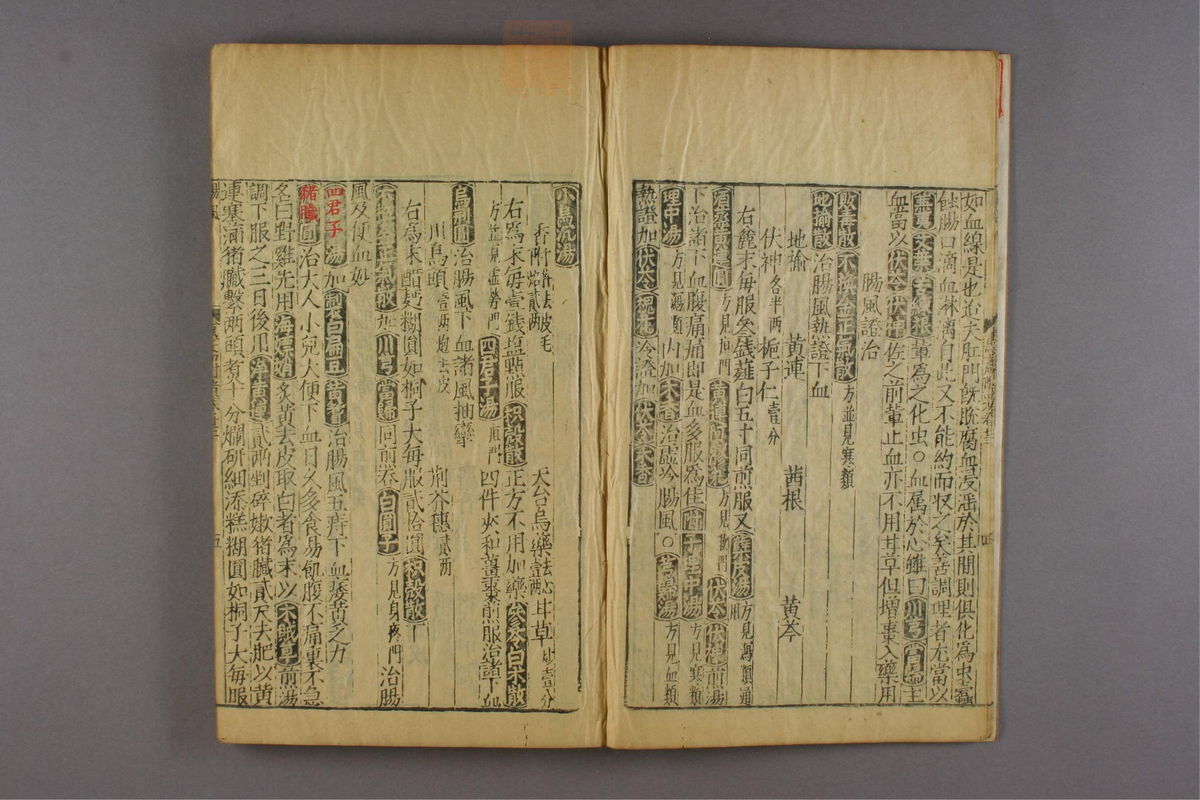 如血線是也迨夫肛門既脫腐血浸淫於其間則俱化為虫蠧
蝕腸口滴血淋漓自此又不能約而收之矣善調理者尤當以
艾葉苦練根輩為之化虫○血屬於心雖曰川芎當歸主
血當以伏苓伏神佐之前輩止血亦不用甘草但增棗入藥用
腸風證治
敗毒散 不換金正氣散方並見寒類
地揄散治腸風熱證下血
地揄 黃連 茜根 黃芩
伏神各半兩 梔子仁壹分
右麄末每服叄錢薤白五寸同煎服又陳皮湯方見瀉類通用
酒蒸黃連圓方見 門 黃 阿膠 方見 門 伏苓伏神前湯
下治諸下血腹痛痛即是血多服為佳附子理中湯方見寒類
理中湯方見瀉類內加木香治虛冷腸風○芎歸湯方見血類
熱證加伏苓槐花冷證加伏苓木香
小烏沉湯
香附 去皮毛 貳兩 天台烏藥去心壹兩 甘草炒壹分
右為末每壹錢塩點服枳殼散正方不用加藥參苓白朮散
方並見虛勞門四君子湯 門 四件夾和薑棗煎服治諸下血
烏荊圓治腸風下血諸風抽攣
川烏頭壹兩炮去皮 荊芥穗貳兩
右為末醋麪糊圓如桐子大每服貳拾圓枳殼散下
不換金正氣散加川芎當歸同煎吞白圓子方見身疼門治腸
風及便血妙
四君子湯加製白扁豆黃耆治腸風五痔下血痿黃乏力
豬臟圓治大人小兒大便下血日久多食易飢腹不痛裏不急
名曰對雞先用海螵蛸炙黃去皮取白者為末以木賊草煎湯
調下服之三日後用淨黃連貳兩剉碎嫩豬臟貳尺去肥以黃
連塞滿豬臟繫兩頭煮十分爛研細添糕糊圓如桐子大每服